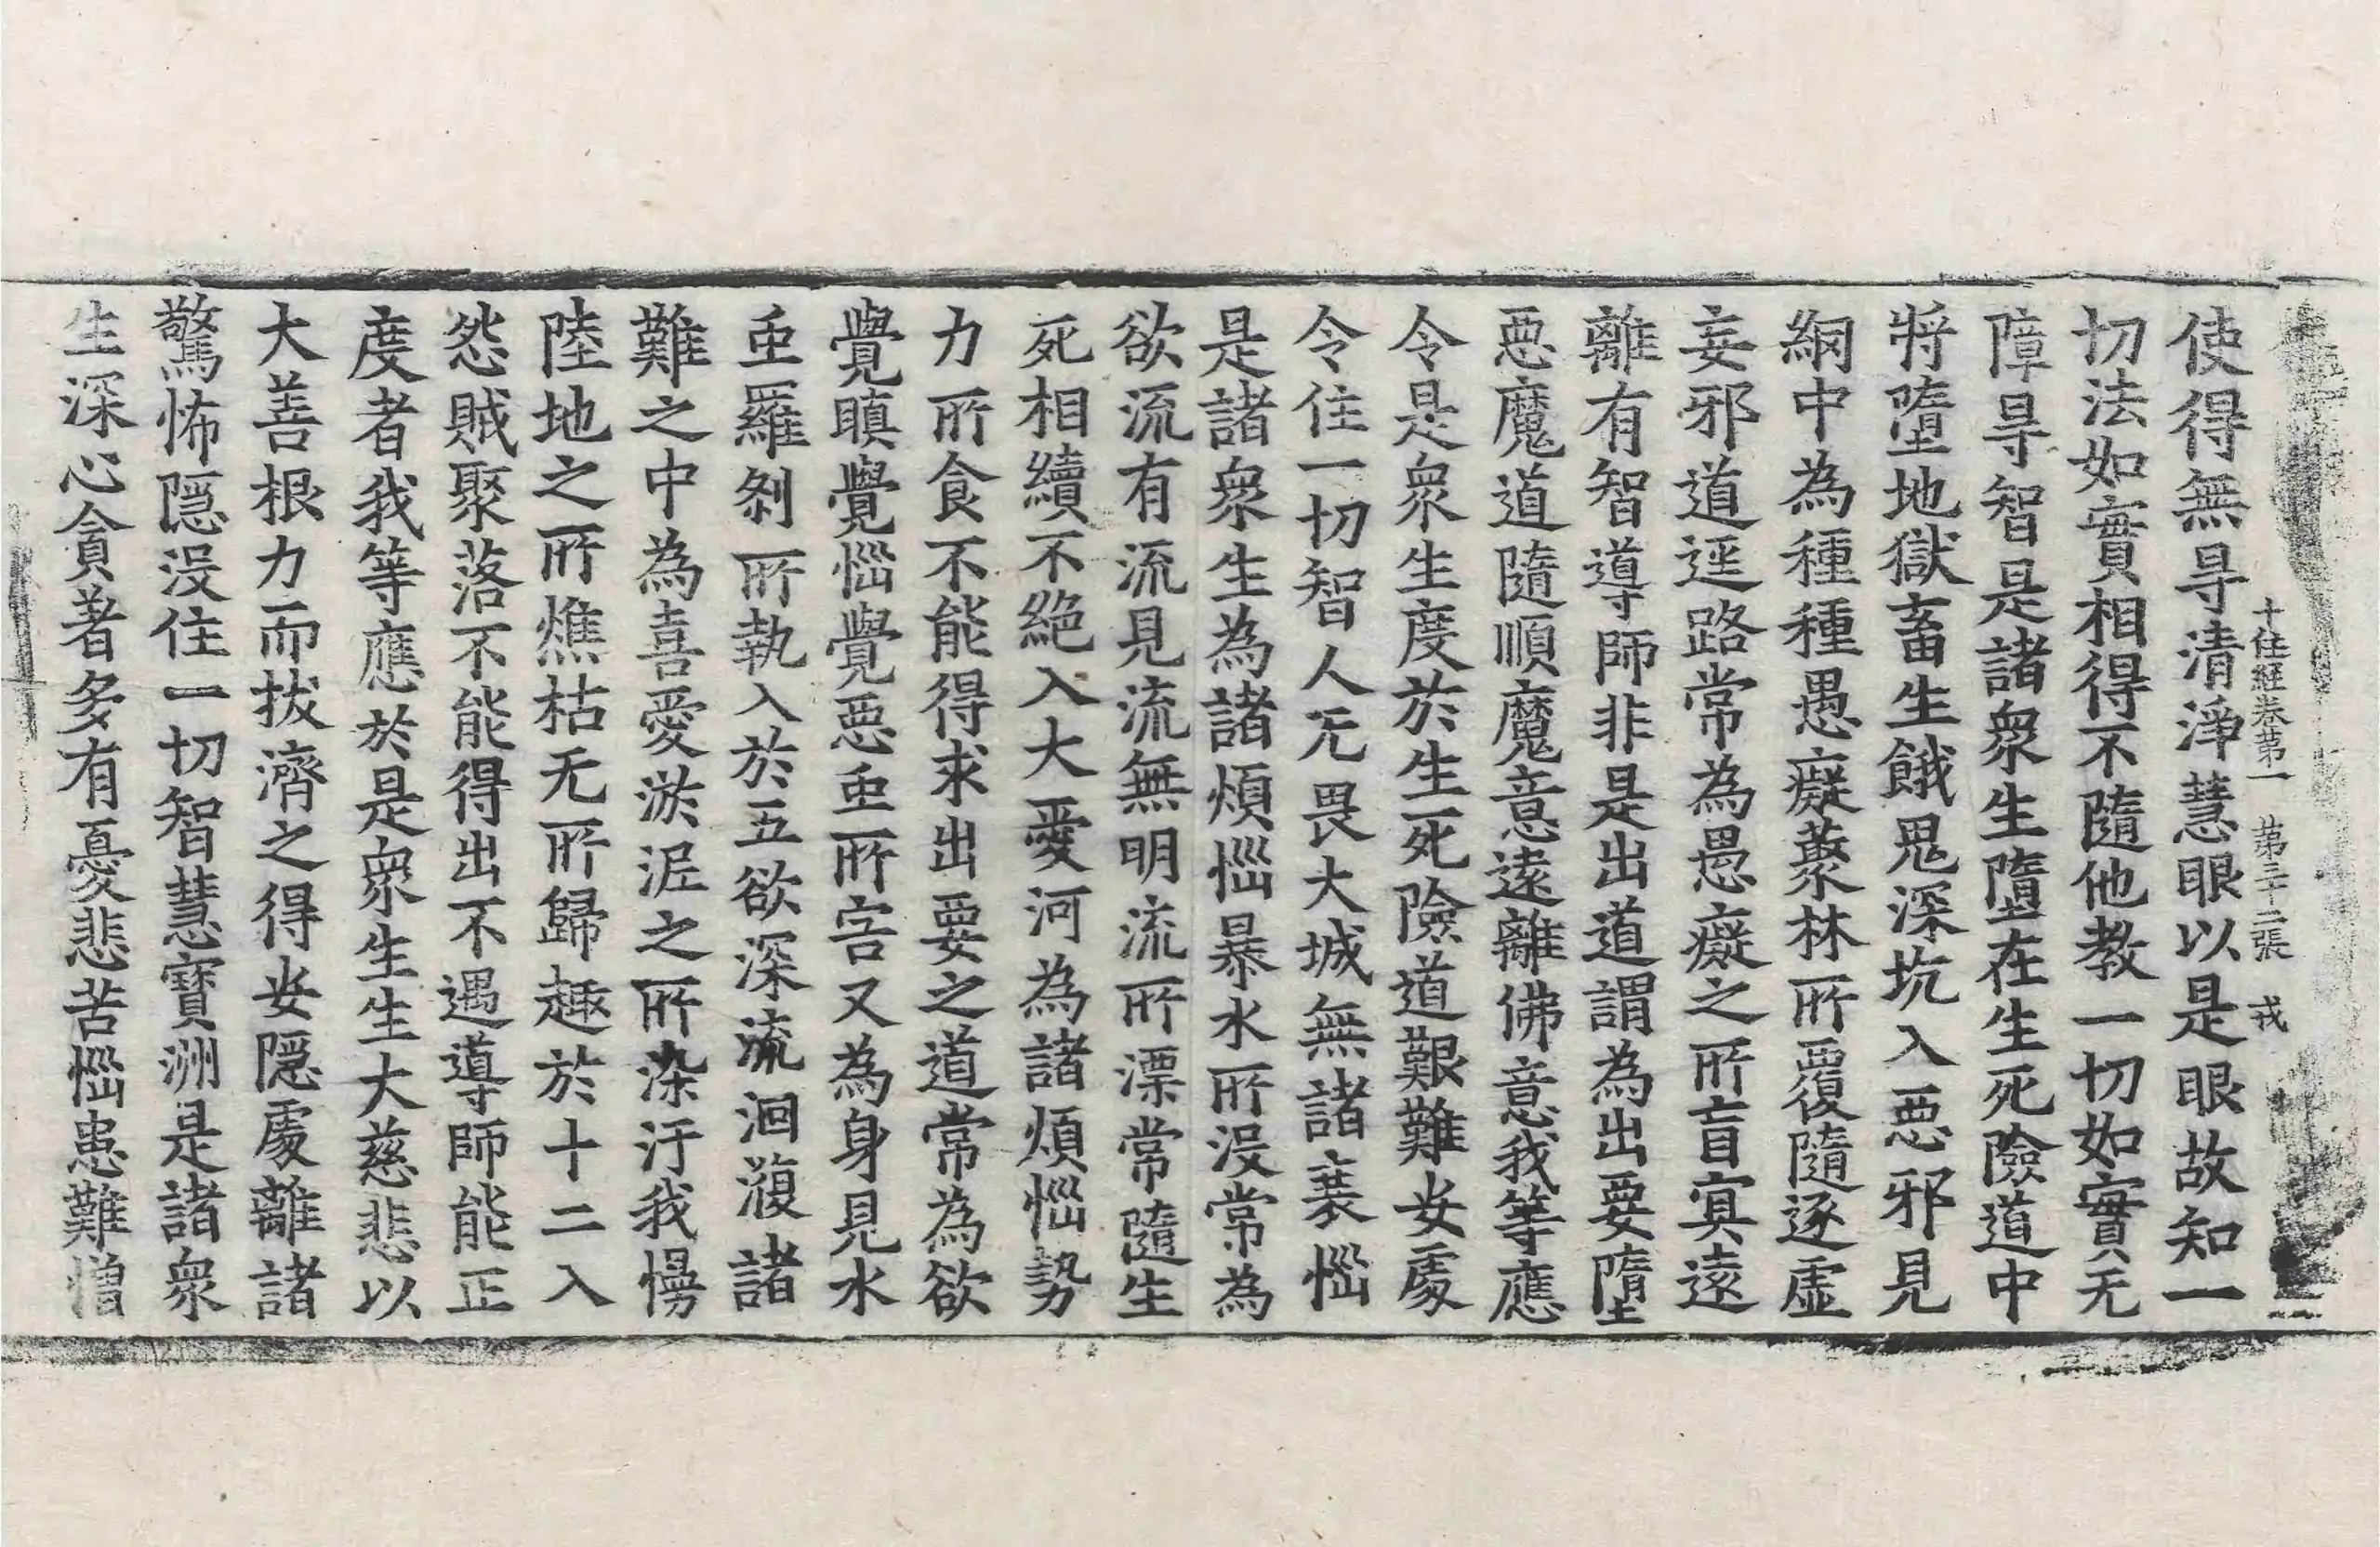 十住經卷第一　第三十二張　戎
使得無㝵清淨慧眼以是眼故知一
切法如實相得不隨他教一切如實无
障㝵智是諸衆生墮在生死險道中
將墮地獄畜生餓鬼深坑入惡邪見
網中為種種愚癡藂林所覆隨逐虛
妄邪道逕路常為愚癡之所盲冥遠
離有智導師非是出道謂為出要墮
惡魔道隨順魔意遠離佛意我等應
令是衆生度於生死險道艱難安處
令住一切智人无畏大城無諸衰惱
是諸衆生為諸煩惱暴水所没常為
欲流有流見流無明流所漂常隨生
死相續不絕入大愛河為諸煩惱勢
力所食不能得求出要之道常為欲
覺瞋覺惱覺惡虫所害又為身見水
虫羅刹所執入於五欲深流洄澓諸
難之中為喜愛淤泥之所染汙我慢
陸地之所燋枯无所歸趣於十二入
怨賊聚落不能得出不遇導師能正
度者我等應於是衆生生大慈悲以
大善根力而拔濟之得安隱處離諸
驚怖隱没住一切智慧寶洲是諸衆
生深心貪著多有憂悲苦惱患難憎